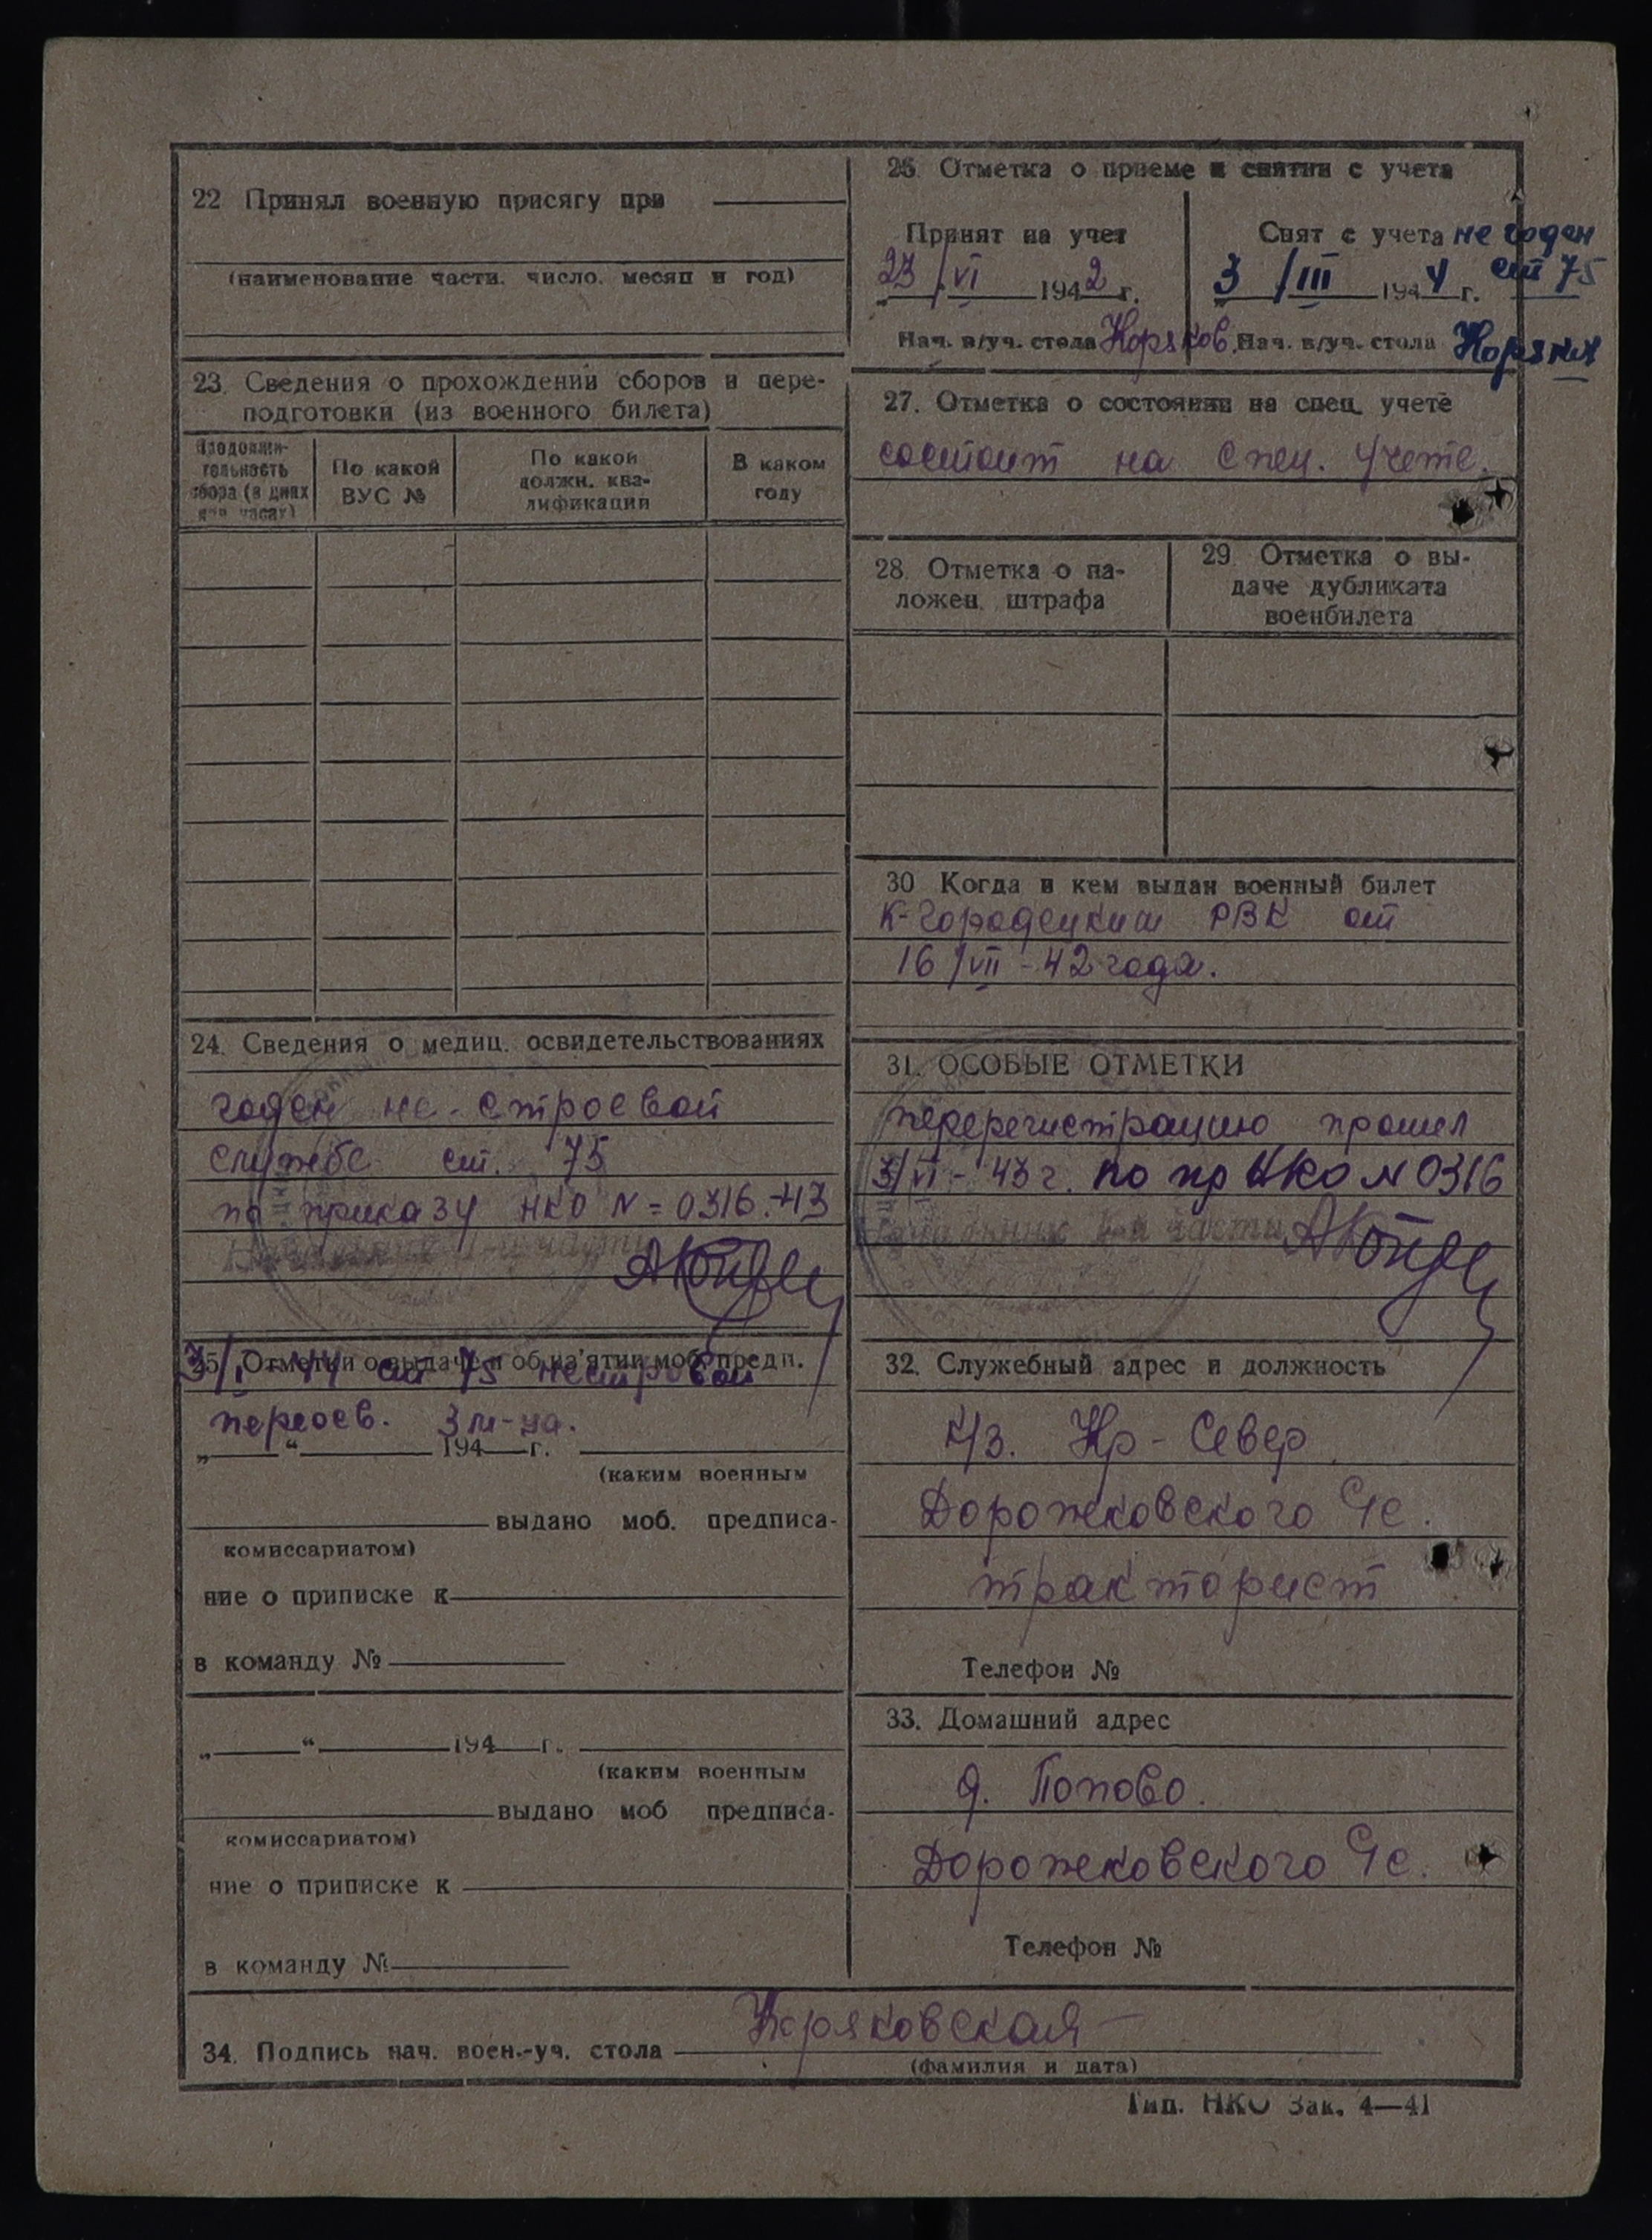 22 Принял военную присягу при
(наименование части, число, месяц и год)
23. Сведения о прохождении сборов и пере-
подготовки (из военного билета)
Продолжи-
тельность
сбора (в днях
или часах)
По какой
ВУС №
По какой
должн. ква-
лификации
В каком
году
24. Сведения о медиц. освидетельствованиях
годен не-строевой
службе ст. 75
по приказу НКО N=0316-43
Начальник части
25. Отметки о выдаче и об из'ятии моб. предп.
3/I-44 ст 75 нестроевой
переосв. 3 м-ца.
„ “ 194 г.
(каким военным
выдано моб. предписа-
комиссариатом)
ние о приписке к
в команду №
„ “ 194 г.
(каким военным
выдано моб предписа-
комиссариатом)
ние о приписке к
в команду №
26. Отметка о приеме и снятии с учета
Принят на учет
23/VI 1942 г.
Нач. в/уч. стола Коряков.
Снят с учета не годен
3/III 1944 г. ст 75
Нач. в/уч. стола
27. Отметка о состоянии на спец. учете
состоит на Спец. Учете.
28. Отметка о на-
ложен. штрафа
29. Отметка о вы-
даче дубликата
военбилета
30 Когда и кем выдан военный билет
К-Городецким РВК от
16/VII-42 года.
31. ОСОБЫЕ ОТМЕТКИ
перерегистрацию прошел
3/VI-43 г. по пр НКО N 0316
части
32. Служебный адрес и должность
К/з. Кр-Север
Дорожковского Чс.
тракторист
Телефон №
33. Домашний адрес
д. Попово.
Дорожковского Чс.
Телефон №
34. Подпись нач. воен.-уч. стола Коряковская
(фамилия и дата)
Тип. НКО Зак. 4—41